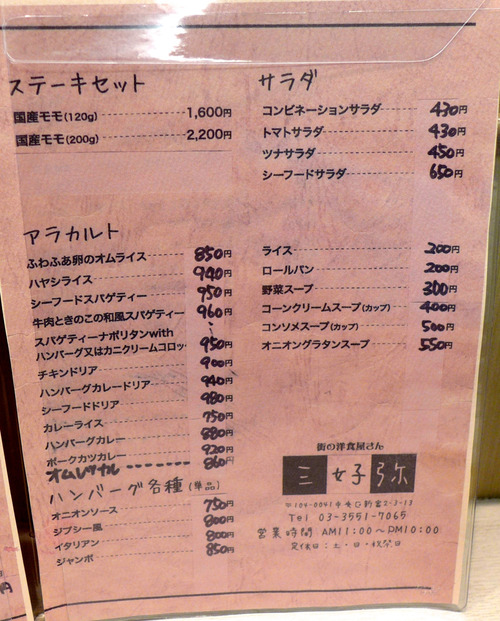 ステーキセット
国産モモ(120g) 1,600円
国産モモ(200g) 2,200円
サラダ
コンビネーションサラダ 430円
トマトサラダ 430円
ツナサラダ 450円
シーフードサラダ 650円
アラカルト
ふわふあ卵のオムライス 850円
ハヤシライス 940円
シーフードスパゲティー 950円
牛肉ときのこの和風スパゲティー 960円
スパゲティーナポリタンwith
ハンバーグ又はカニクリームコロッ 950円
チキンドリア 900円
ハンバーグカレードリア 940円
シーフードドリア 980円
カレーライス 750円
ハンバーグカレー 880円
ポークカツカレー 920円
オムレカル 860円
ライス 200円
ロールパン 200円
野菜スープ 300円
コーンクリームスープ(カップ) 400円
コンソメスープ(カップ) 500円
オニオングラタンスープ 550円
ハンバーグ各種(単品)
オニオンソース 750円
ジプシー風 800円
イタリアン 800円
ジャンボ 850円
街の洋食屋さん
三女子弥
〒104-0041中央区新富2-3-13
Tel 03-3551-7065
営業時間 AM11:00〜PM10:00
定休日:土・日・祝祭日